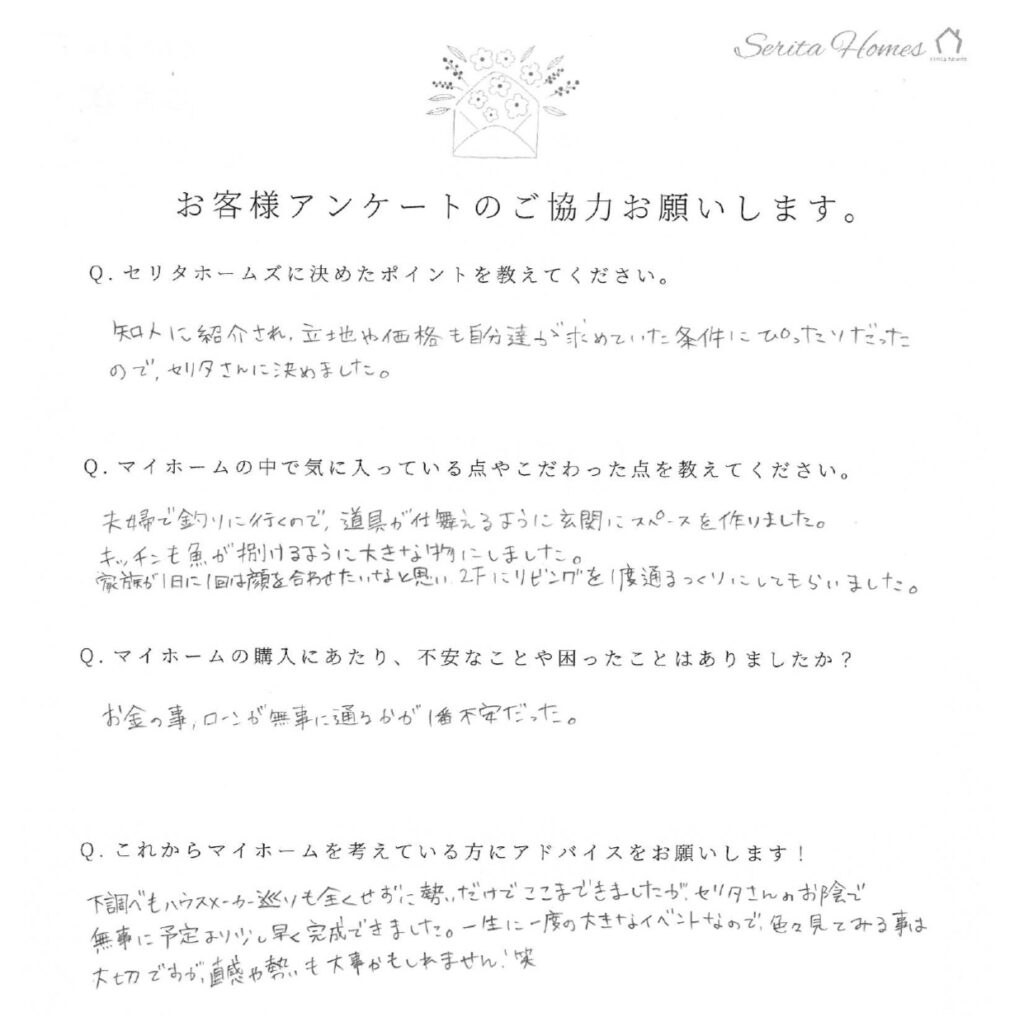 Serita Homes
お客様アンケートのご協力お願いします。
Q. セリタホームズに決めたポイントを教えてください。
知人に紹介され、立地や価格も自分達が求めていた条件にぴったりだった
ので、セリタさんに決めました。
Q. マイホームの中で気に入っている点やこだわった点を教えてください。
夫婦で釣りに行くので、道具が仕舞えるように玄関にスペースを作りました。
キッチンも魚が捌けるように大きな物にしました。
家族が1日に1回は顔を合わせたいなと思い、2Fにリビングを1度通るつくりにしてもらいました。
Q. マイホームの購入にあたり、不安なことや困ったことはありましたか？
お金の事、ローンが無事に通るかが1番不安だった。
Q. これからマイホームを考えている方にアドバイスをお願いします！
下調べもハウスメーカー巡りも全くせずに勢いだけでここまできましたが、セリタさんのお陰で
無事に予定より少し早く完成できました。一生に一度の大きなイベントなので、色々見てみる事は
大切ですが、直感や勢いも大事かもしれません！笑